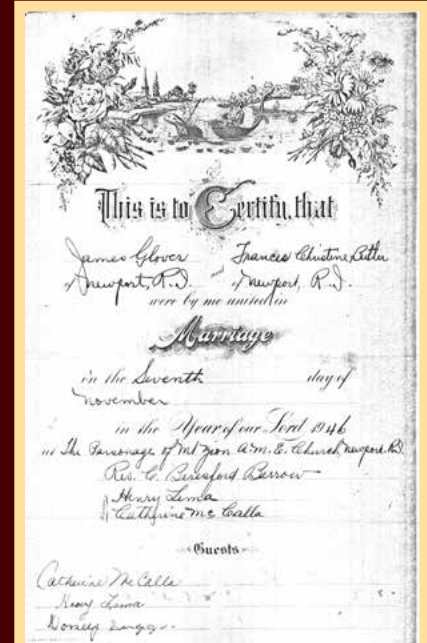 This is to Certify, that
James Glover Frances Christine
of Newport, R.I. and of Newport, R.I.
were by me united in
Marriage
in the Seventh day of
November
in the Year of our Lord 1946
at The Parsonage of Mt Zion A.M.E. Church, Newport R.I.
Rev. C. Beresford Barrow
Henry Lima
Catherine McCalla
Guests
Catherine McCalla
Henry Lima